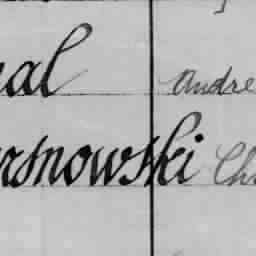 nal Andre
rsnowski Ch